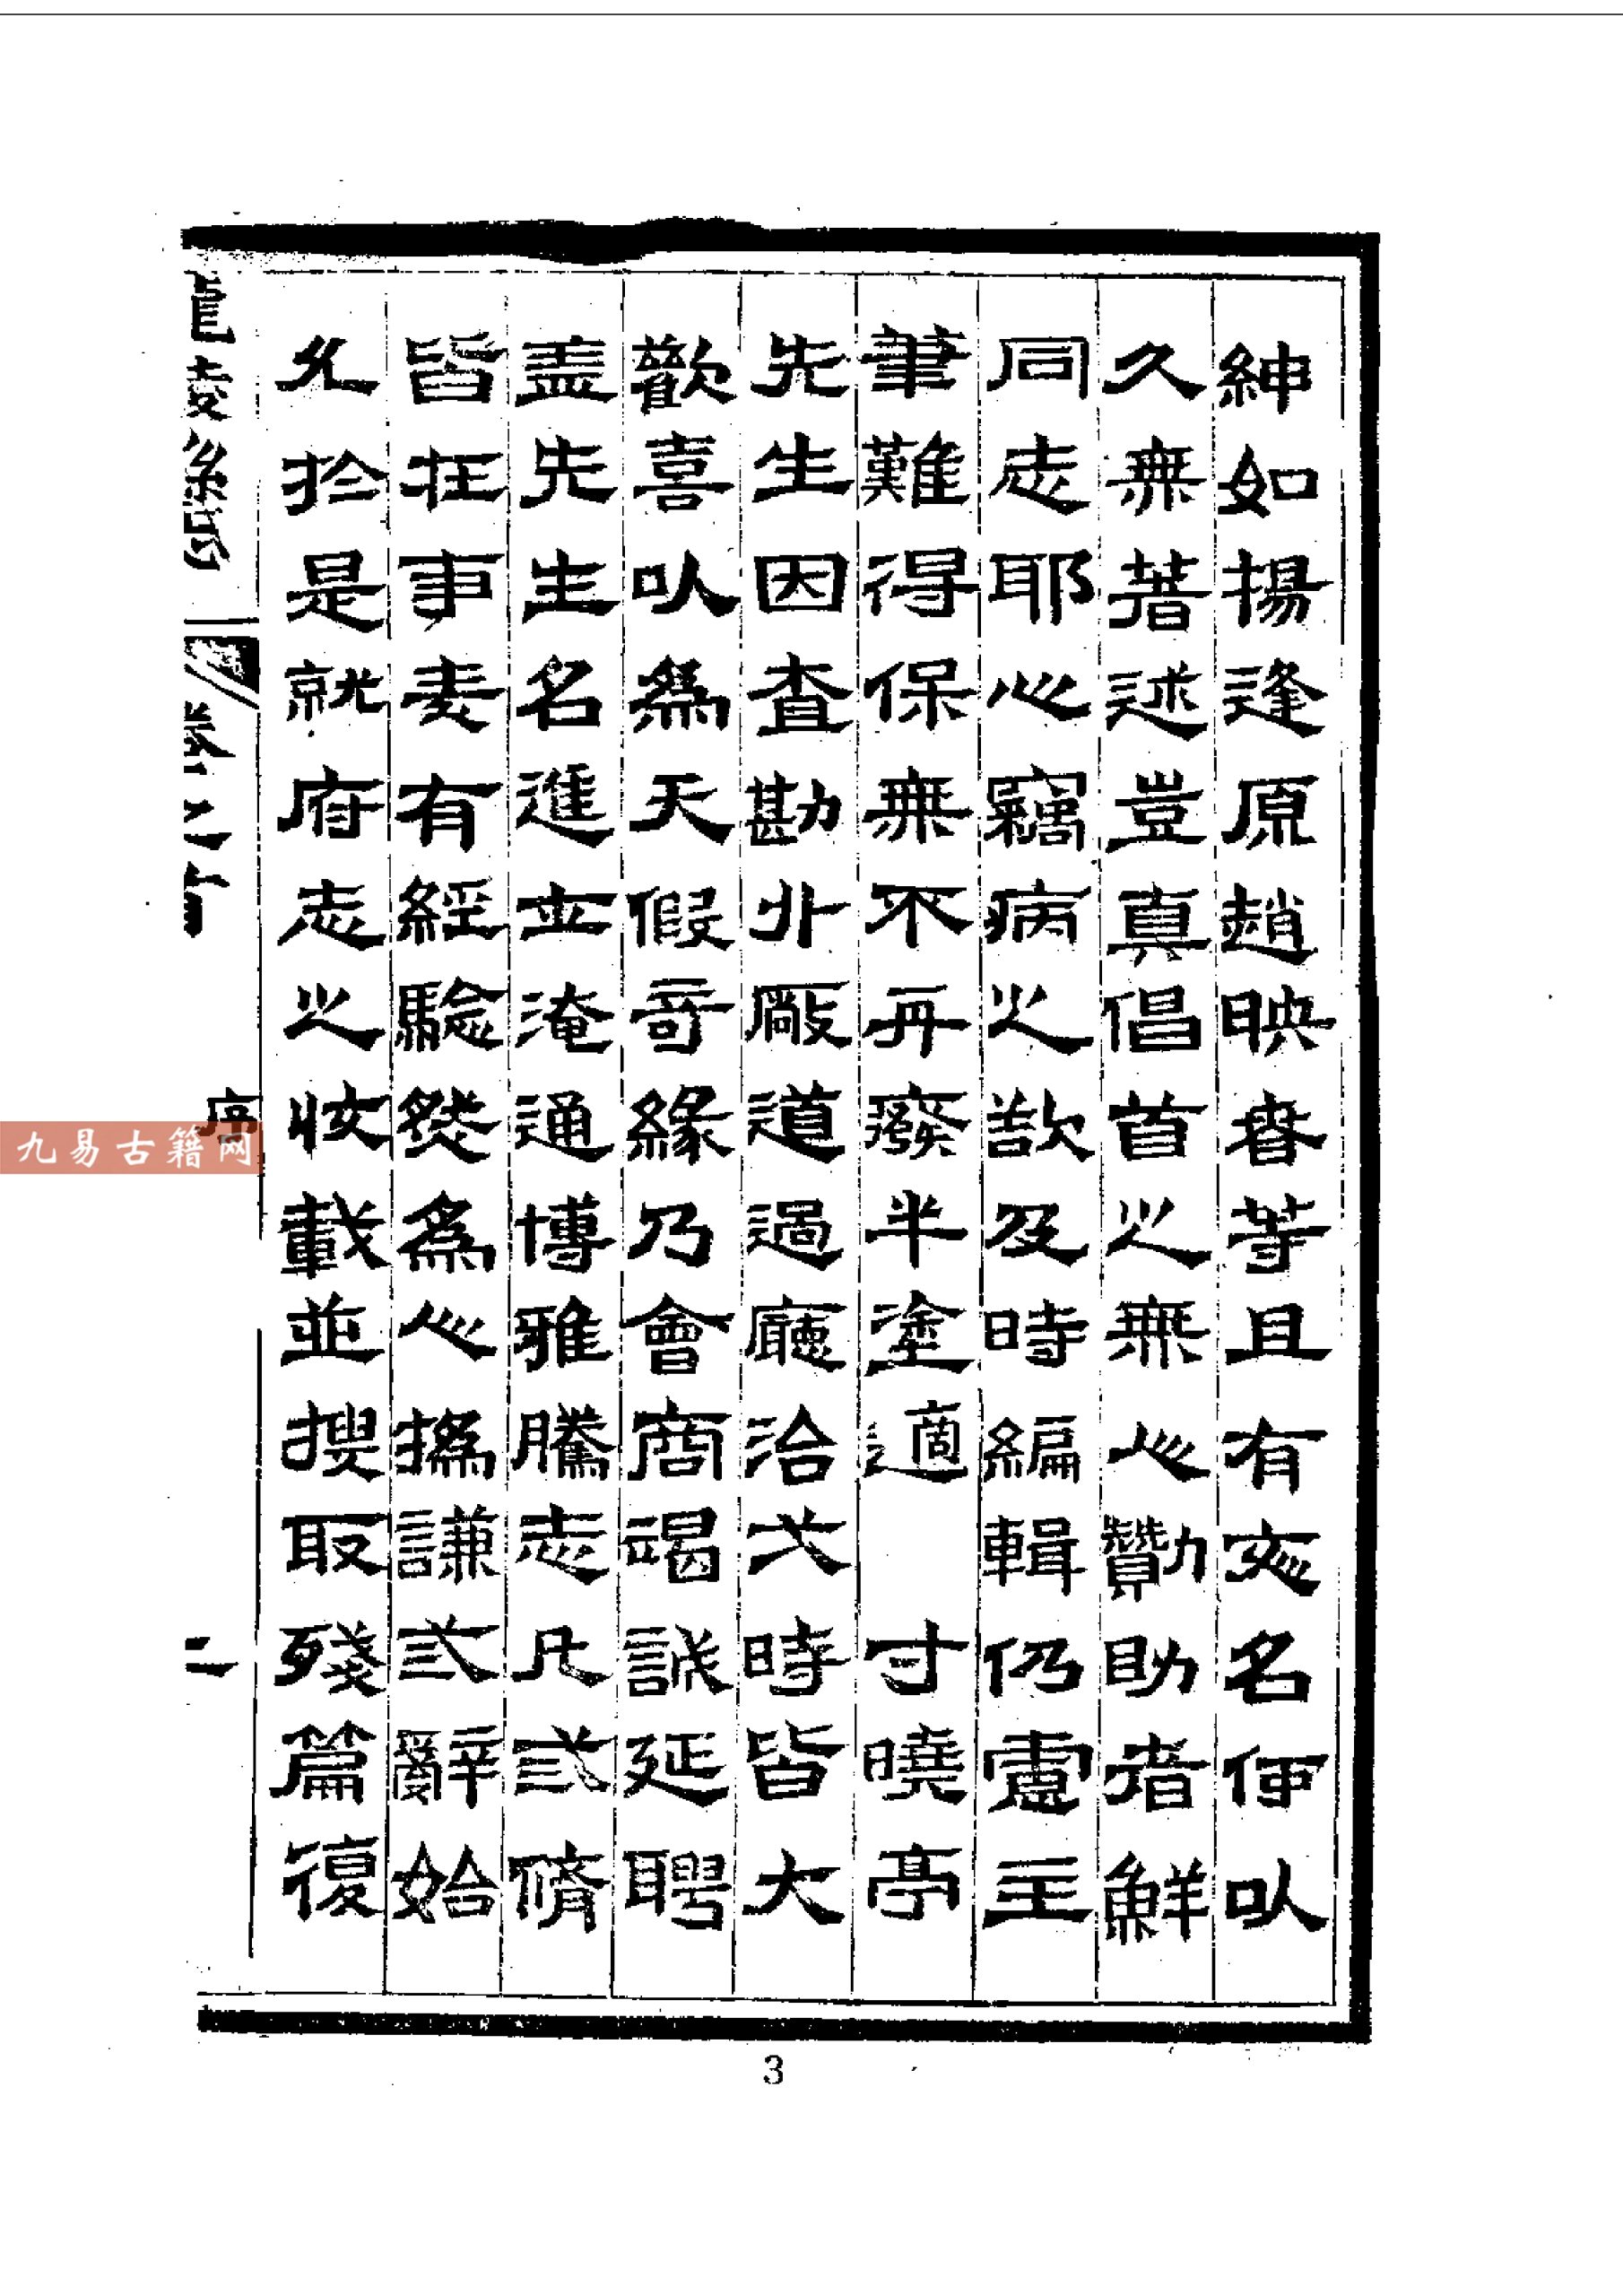 紳如揚逢原趙映春等且有亥名何㠯
久無著述豈真倡首之無心贊勷助者鮮
同志耶心竊病之欲及時編輯仍慮主
筆難得保無不再廢半塗適 寸曉亭
先生因查勘北厰道過廳治六時皆大
歡喜㠯為天假奇緣乃會商竭誠延聘
盖先生名進士淹通博雅騰志凡弍脩
皆在事素有經驗然為心撝謙弍辭始
允於是就府志之收載並搜取殘篇復
龍陵縣志
卷之首
序
二
九易古籍网
3